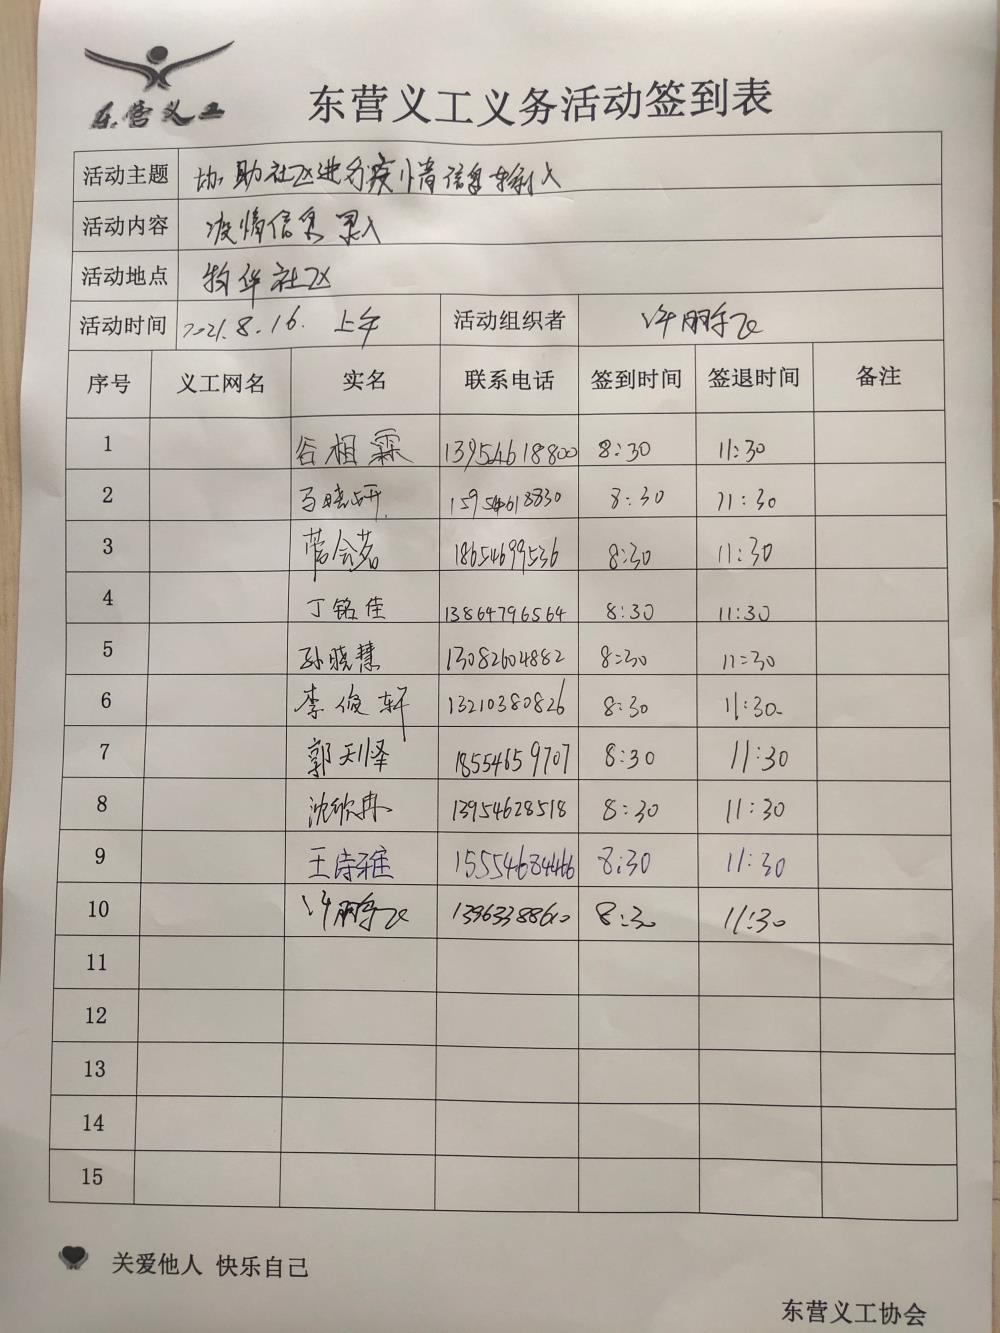 东营义工
东营义工义务活动签到表
活动主题 协助社区进行疫情信息输入
活动内容 疫情信息录入
活动地点 物华社区
活动时间 2021.8.16. 上午 活动组织者 许鹏飞
序号 义工网名 实名 联系电话 签到时间 签退时间 备注
1 谷相霖 13954618800 8:30 11:30
2 马晓妍 15954618830 8:30 11:30
3 营会茗 18654699536 8:30 11:30
4 丁铭佳 13864796564 8:30 11:30
5 孙晓慧 13082604882 8:30 11:30
6 李俊轩 13210380826 8:30 11:30
7 郭天泽 18554659707 8:30 11:30
8 沈欣冉 13954628518 8:30 11:30
9 王诗雅 15554684466 8:30 11:30
10 许鹏飞 13963388610 8:30 11:30
11
12
13
14
15
关爱他人 快乐自己
东营义工协会